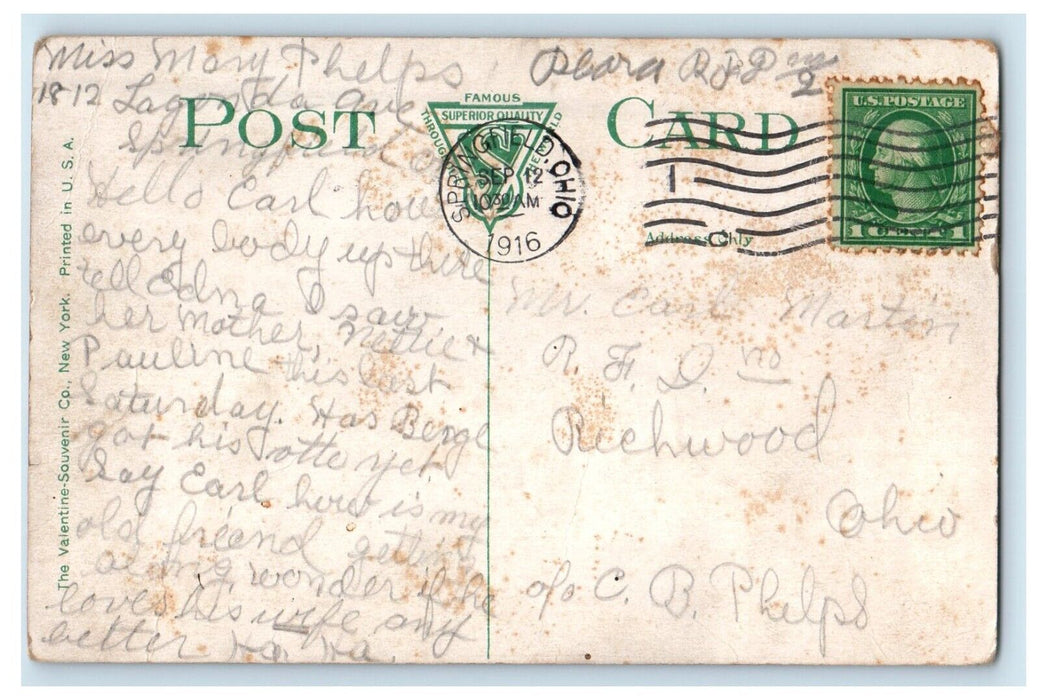 Miss Mary Phelps
1812 Lagonda Ave
Springfield O
Hello Earl how
every body up there
tell Edna I saw
her Mother, Nettie &
Pauline this last
Saturday. Has
got his yet
Say Earl how is my
old friend getting
along wonder if he
loves his wife any
better Ha Ha.
R F D
2
POST CARD
FAMOUS
SUPERIOR QUALITY
THROUGHOUT THE WORLD
SPRINGFIELD, OHIO
SEP 12
10 30 AM
1916
U.S. POSTAGE
1 CENT 1
Address Only
Mr. Earl Martin
R. F. D. no
Richwood
Ohio
c/o C. B. Phelps
The Valentine-Souvenir Co., New York. Printed in U. S. A.